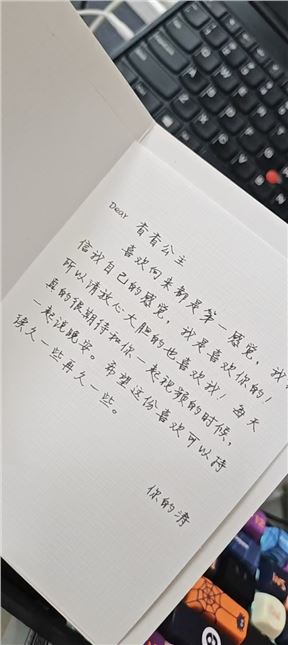 Dear 宥宥公主
喜欢向来都是第一感觉，我
信我自己的感觉，我是喜欢你的！
所以请放心大胆的也喜欢我！每天
真的很期待和你一起视频的时候，
一起说晚安。希望这份喜欢可以持
续久一些再久一些。
你的涛